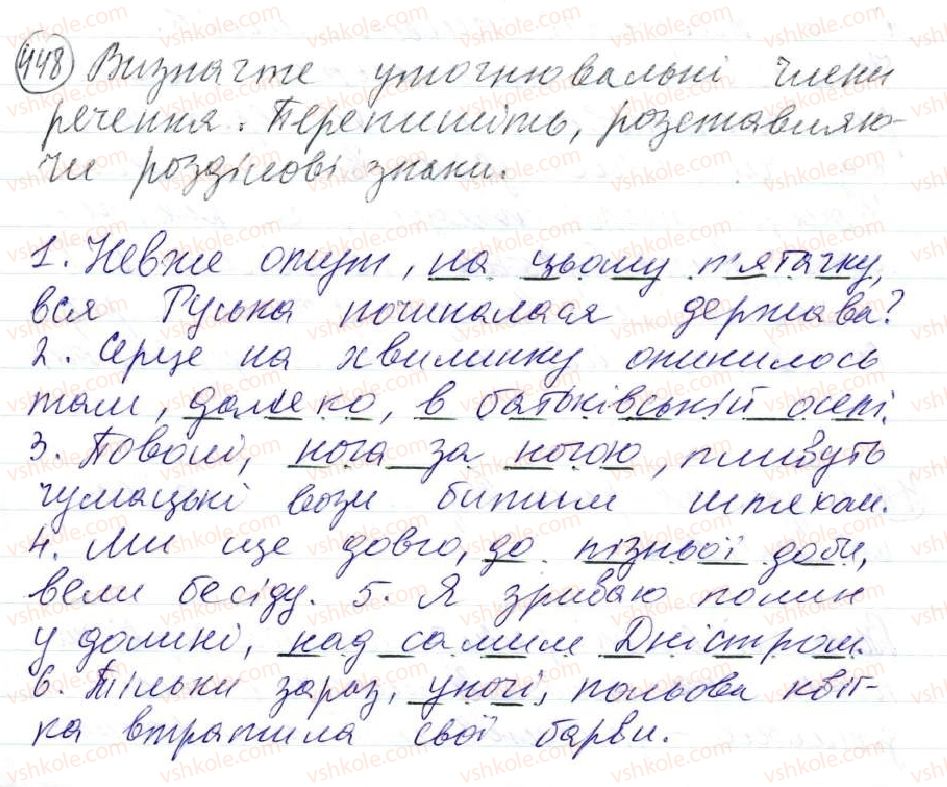 448 Визначте уточнювальні члени
речення. Перепишіть, розставляю-
чи розділові знаки.
1. Невже отут, на цьому п'ятачку,
вся Руська починалася держава?
2. Серце на хвилинку опинилось
там, далеко, в батьківській оселі.
3. Поволі, нога за ногою, пливуть
чумацькі вози битим шляхом.
4. Ми ще довго, до пізньої доби,
вели бесіду. 5. Я зриваю полин
у долині, над самим Дністром.
6. Тільки зараз, уночі, польова квіт-
ка втратила свої барви.
vshkole.com